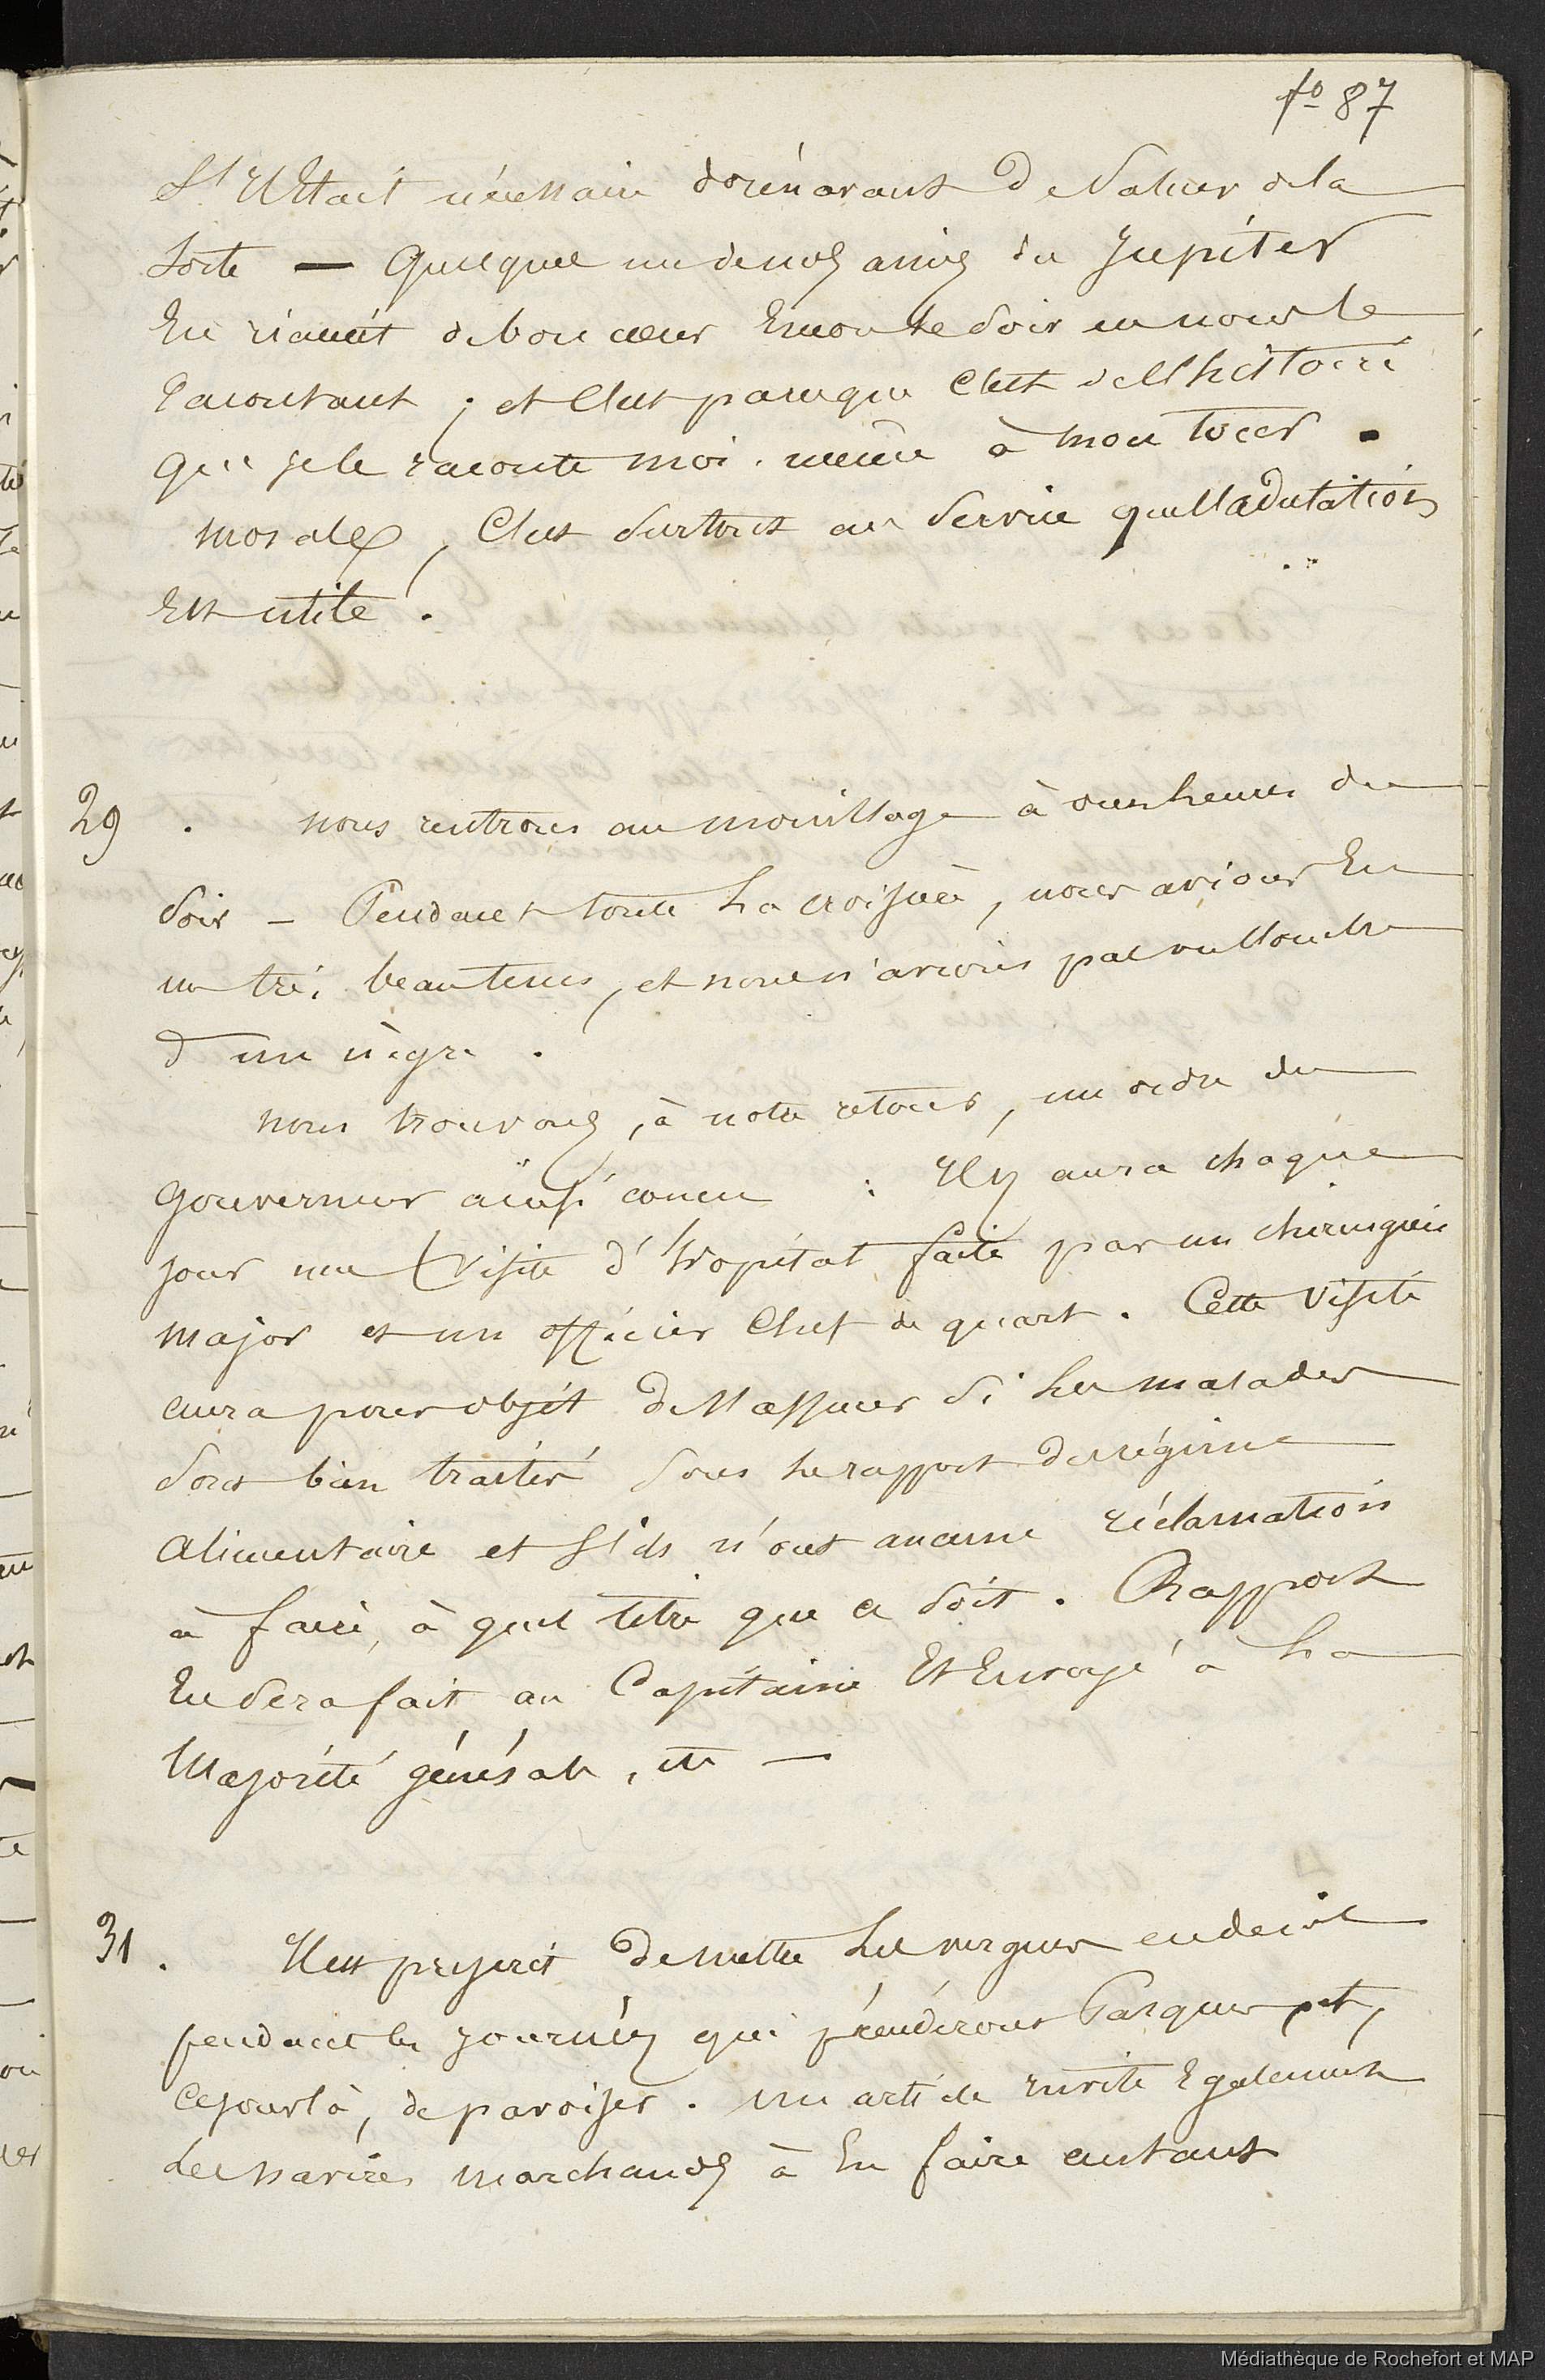 fo 87
s'il était nécessaire dorénavant de saluer de la
sorte — Quelques uns de nos amis du Jupiter
en riaient de bon cœur encore le soir en nous le
racontant ; et c'est parceque c'est de l'histoire
que je le raconte moi-même à mon tour.
morale, C'est surtout au service que l'adulation
est utile.
29. nous rentrons au mouillage à onze heures du
soir — Pendant toute la croisière, nous avions eu
un très beau tems, et nous n'avions pas vu l'ombre
d'un nègre.
nous trouvons, à notre retour, un ordre du
gouverneur ainsi conçu : Il y aura chaque
jour une visite d'hopital faite par un chirurgien
major et un officier chef de quart. Cette visite
aura pour objet de s'assurer si les malades
sont bien traités sous le rapport du régime
alimentaire et s'ils n'ont aucune réclamation
à faire, à quel titre que ce soit. Rapport
en sera fait au Capitaine et envoyé à la
Majorité générale, etc —
31. Il est prescrit de mettre les vergues en deuil
pendant les journées qui précéderont Pasques et,
ce jour là, de pavoiser. un article invite egalement
les navires marchands à en faire autant
Médiathèque de Rochefort et MAP